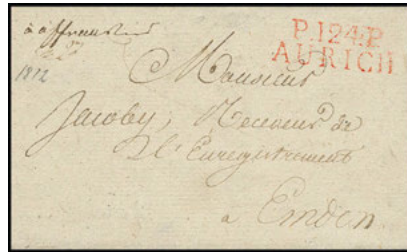 à affranchir
P.124.P.
AURICH
1812
Monsieur
Jacoby, Receveur de
l'Enregistrement
à Emden